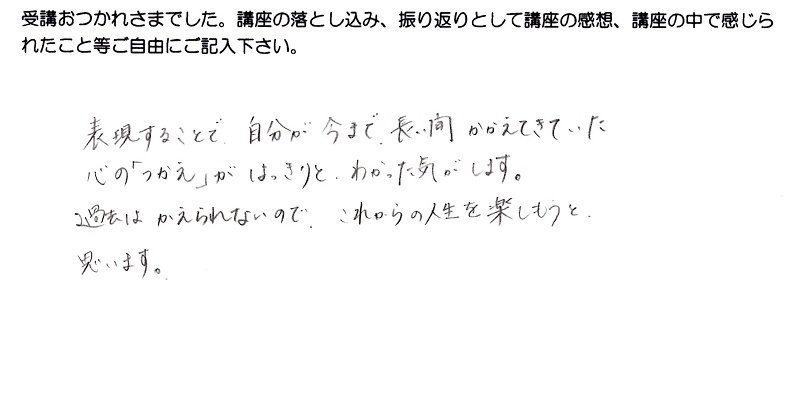 受講おつかれさまでした。講座の落とし込み、振り返りとして講座の感想、講座の中で感じら
れたこと等ご自由にご記入下さい。
表現することで、自分が今まで、長い間かかえてきていた
心の「つかえ」がはっきりと、わかった気がします。
過去はかえられないので、これからの人生を楽しもうと、
思います。